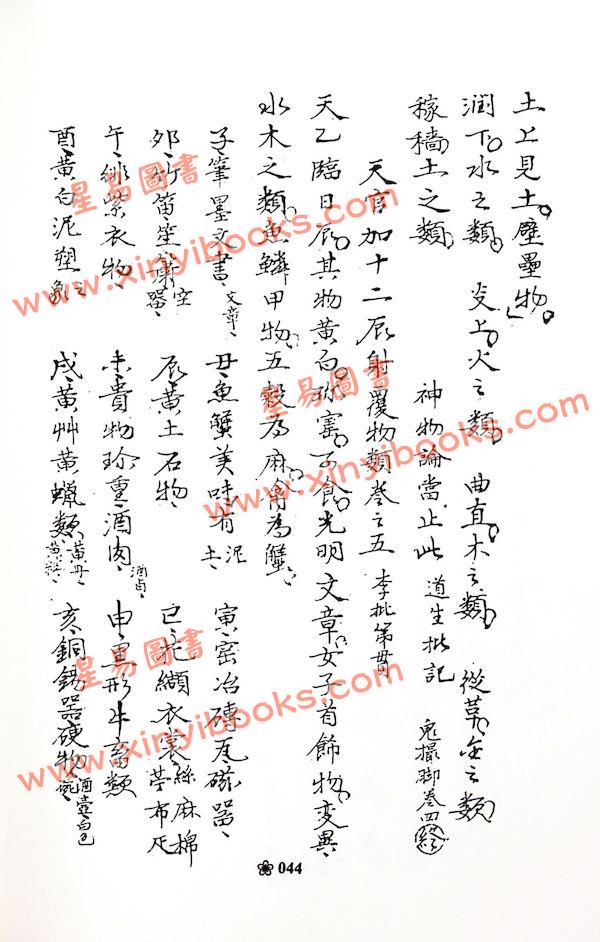 土上見土壁壘物
潤下水之類　炎上火之類　曲直木之類　從革金之類
稼穡土之類　神物論當止此　道生批記　鬼撮脚卷四終
天官加十二辰射覆物類卷之五　李批第貫
天乙臨日辰其物黃白珎窑可食光明文章女子首飾物変異
水木之類魚鱗甲物五穀為麻禽為蟹
子筆墨文書文章　丑魚蟹美味有泥土　寅窑冶磚瓦磁器
夘竹笛笙簫空器　辰黃土石物　巳花纈衣裳絲麻棉苧布疋
午緋紫衣物　未貴物珎重酒肉酒卤　申異形牛畜類
酉黃白泥塑象之　戌黃艸黃蠟類黃丹　亥銅錫器硬物酒壺白色
❀ 044
星易圖書
www.xinyibooks.com
星易圖書
www.xinyibooks.com
星易圖書
www.xinyibooks.com